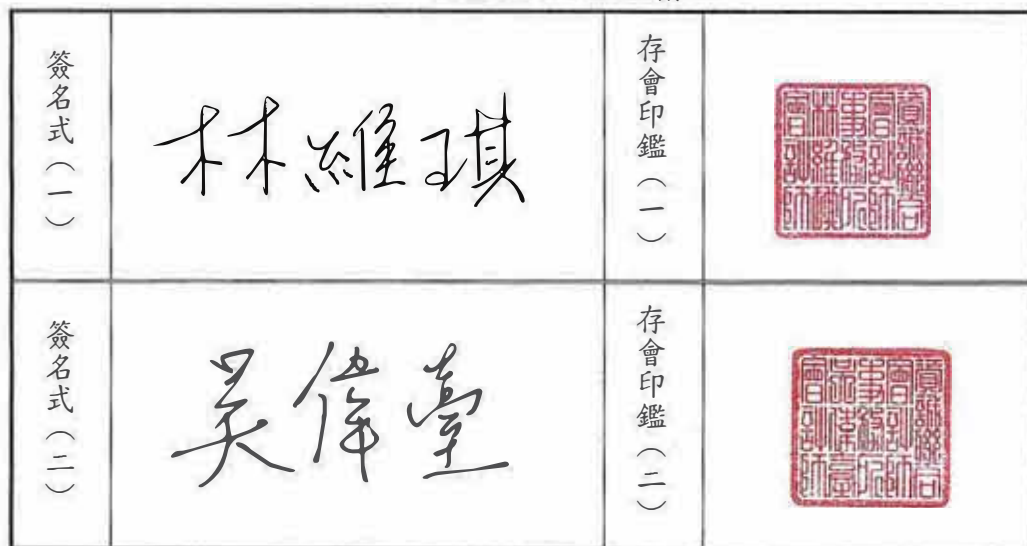 簽名式（一）
林維琪
存會印鑑（一）
資誠聯合會計師事務所林維琪會計師
簽名式（二）
吳偉臺
存會印鑑（二）
資誠聯合會計師事務所吳偉臺會計師